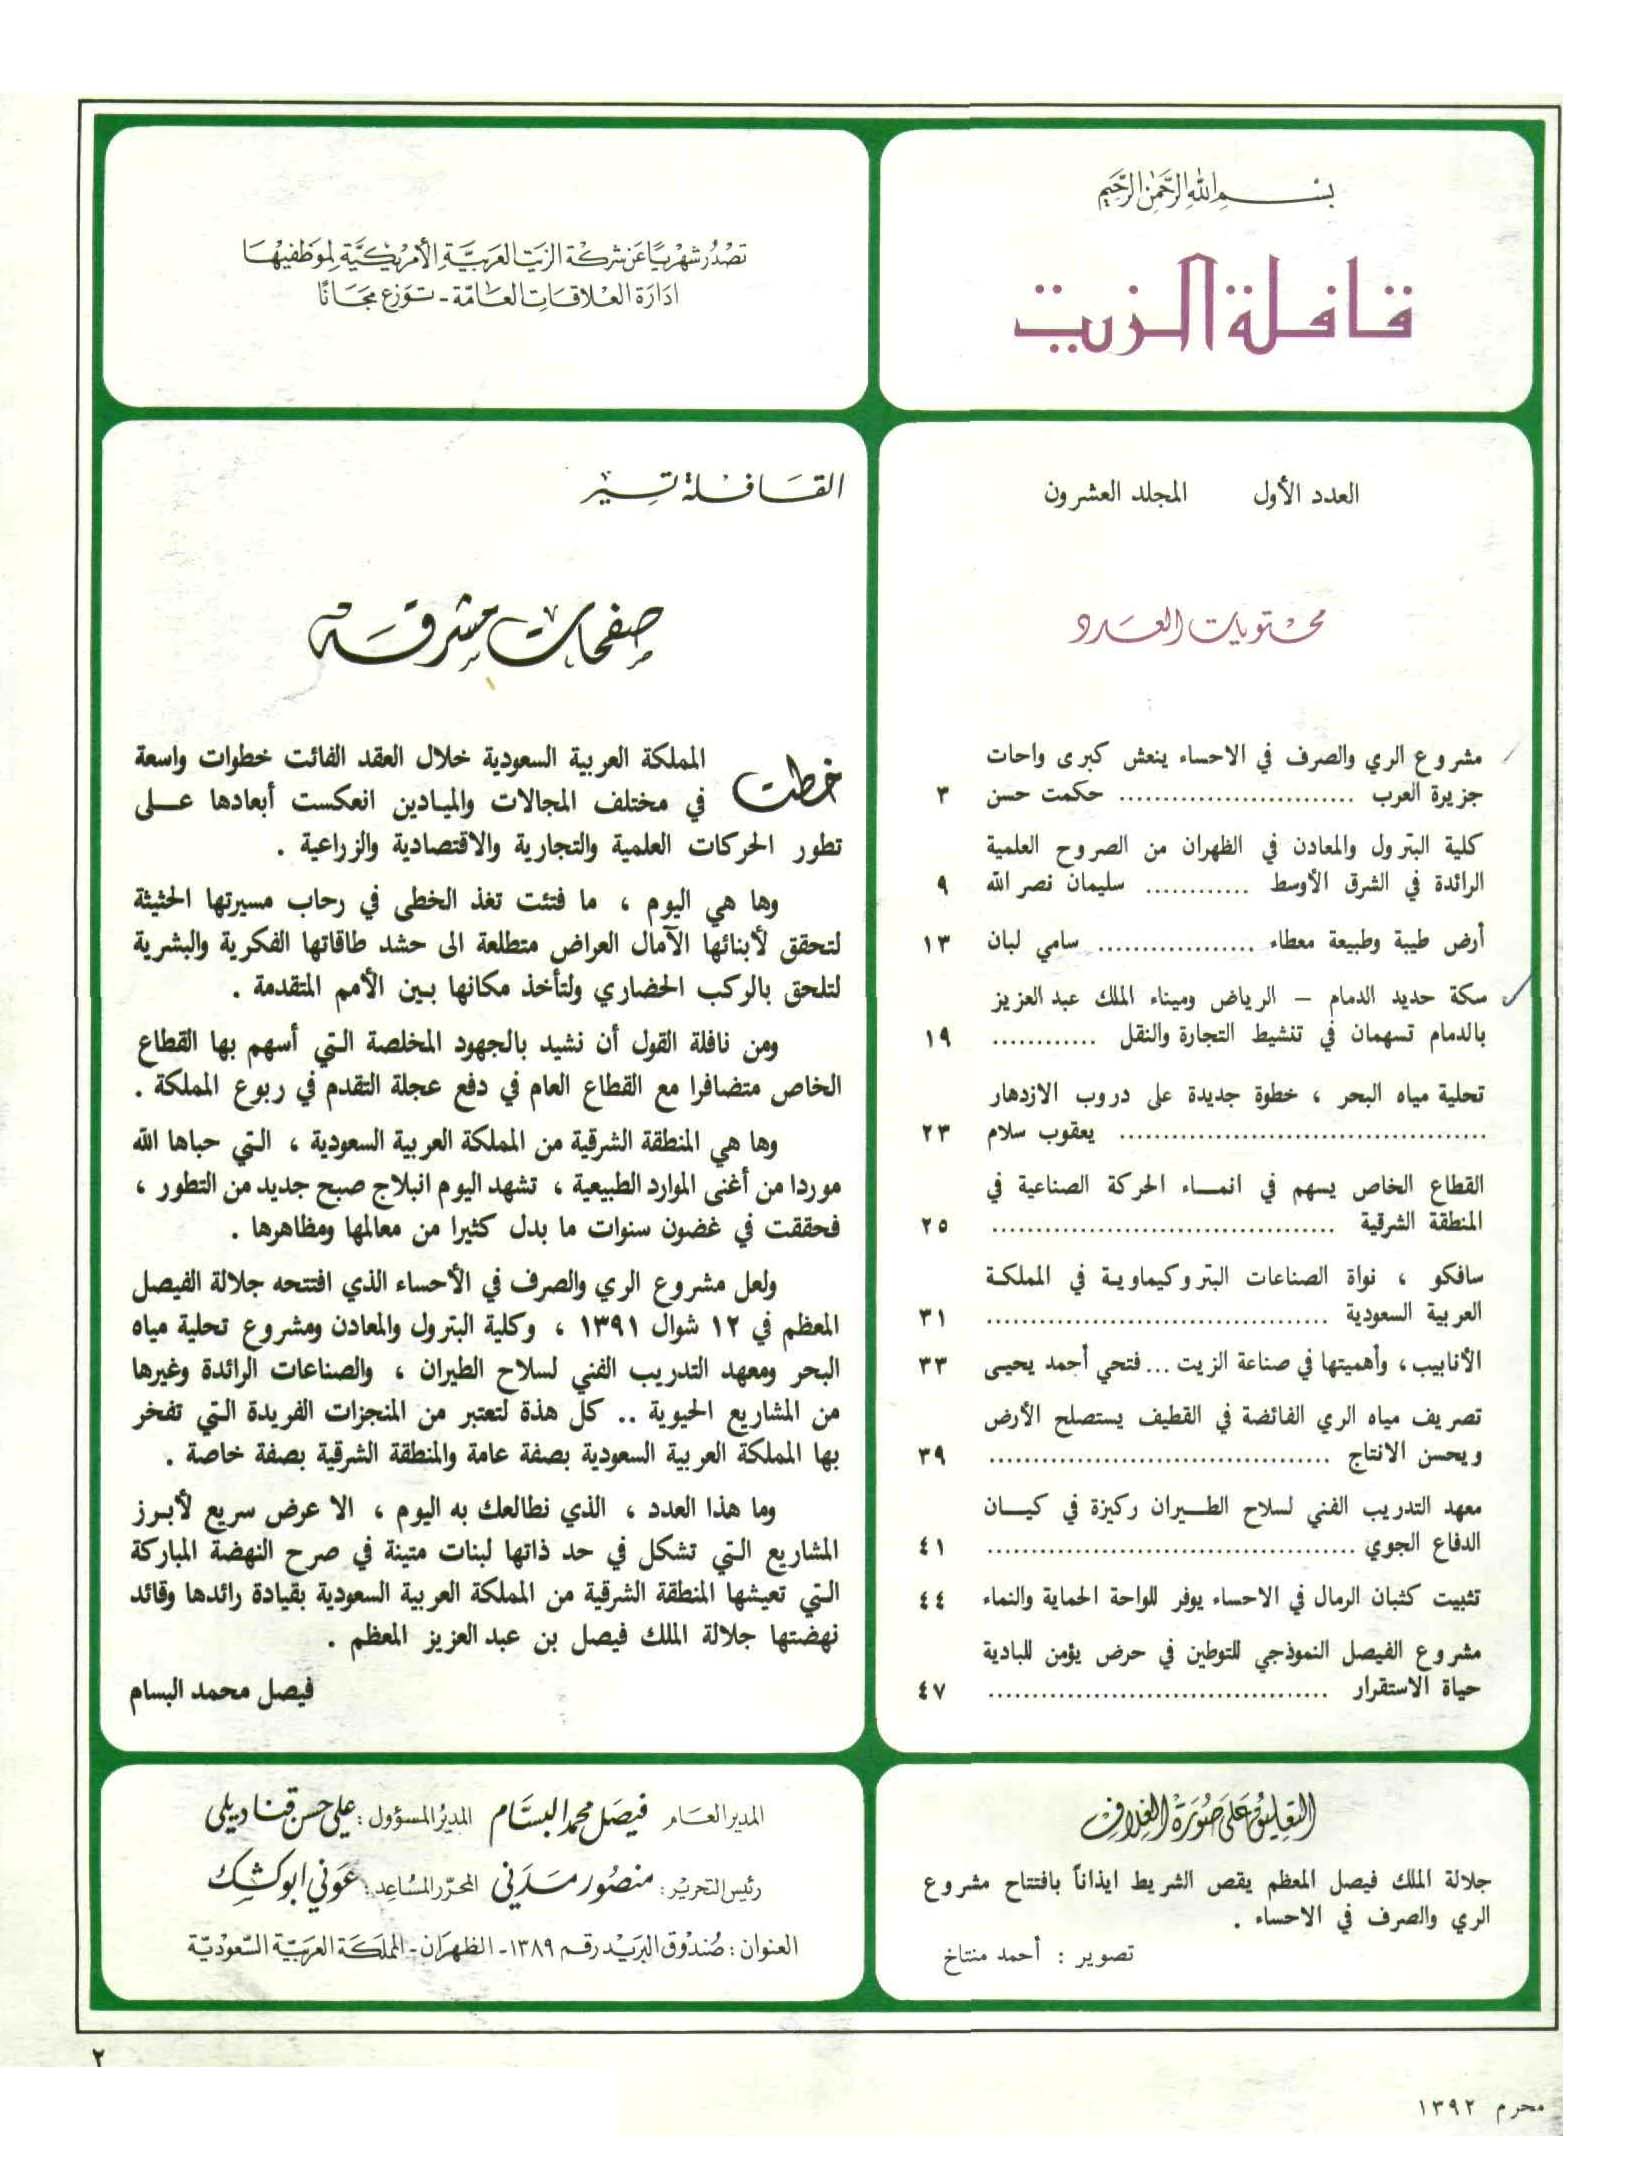 بسم الله الرحمن الرحيم
قافلة الزيت
تصدر شهريا عن شركة الزيت العربية الأمريكية لموظفيها
ادارة العلاقات العامة - توزع مجانا
العدد الأول المجلد العشرون
محتويات العدد
مشروع الري والصرف في الاحساء ينعش كبرى واحات
جزيرة العرب ........................... حكمت حسن ٣
كلية البترول والمعادن في الظهران من الصروح العلمية
الرائدة في الشرق الأوسط ............ سليمان نصر الله ٩
أرض طيبة وطبيعة معطاء .................. سامي لبان ١٣
سكة حديد الدمام – الرياض وميناء الملك عبد العزيز
بالدمام تسهمان في تنشيط التجارة والنقل ............ ١٩
تحلية مياه البحر ، خطوة جديدة على دروب الازدهار
.......................................... يعقوب سلام ٢٣
القطاع الخاص يسهم في انمـــاء الحركة الصناعية في
المنطقة الشرقية ....................................... ٢٥
سافكو ، نواة الصناعات البتروكيماوية في المملكة
العربية السعودية ....................................... ٣١
الأنابيب ، وأهميتها في صناعة الزيت ... فتحي أحمد يحيى ٣٣
تصريف مياه الري الفائضة في القطيف يستصلح الأرض
ويحسن الانتاج ....................................... ٣٩
معهد التدريب الفني لسلاح الطــيران ركيزة في كيــان
الدفاع الجوي .......................................... ٤١
تثبيت كثبان الرمال في الاحساء يوفر للواحة الحماية والنماء ٤٤
مشروع الفيصل النموذجي للتوطين في حرض يؤمن للبادية
حياة الاستقرار ....................................... ٤٧
القافلة تسير
صفحات مشرقة
خطت المملكة العربية السعودية خلال العقد الفائت خطوات واسعة
في مختلف المجالات والميادين انعكست أبعادها عــلى
تطور الحركات العلمية والتجارية والاقتصادية والزراعية .
وها هي اليوم ، ما فتئت تغذ الخطى في رحاب مسيرتها الحثيثة
لتحقق لأبنائها الآمال العراض متطلعة الى حشد طاقاتها الفكرية والبشرية
لتلحق بالركب الحضاري ولتأخذ مكانها بـين الأمم المتقدمة .
ومن نافلة القول أن نشيد بالجهود المخلصة الـتي أسهم بها القطاع
الخاص متضافرا مع القطاع العام في دفع عجلة التقدم في ربوع المملكة .
وها هي المنطقة الشرقية من المملكة العربية السعودية ، الـتي حباها الله
موردا من أغنى الموارد الطبيعية ، تشهد اليوم انبلاج صبح جديد من التطور ،
فحققت في غضون سنوات ما بدل كثيرا من معالمها ومظاهرها .
ولعل مشروع الري والصرف في الأحساء الذي افتتحه جلالة الفيصل
المعظم في ١٢ شوال ١٣٩١ ، وكلية البترول والمعادن ومشروع تحلية مياه
البحر ومعهد التدريب الفني لسلاح الطيران ، والصناعات الرائدة وغيرها
من المشاريع الحيوية .. كل هذة لتعتبر من المنجزات الفريدة الـتي تفخر
بها المملكة العربية السعودية بصفة عامة والمنطقة الشرقية بصفة خاصة .
وما هذا العدد ، الذي نطالعك به اليوم ، الا عرض سريع لأبـرز
المشاريع الـتي تشكل في حد ذاتها لبنات متينة في صرح النهضة المباركة
الـتي تعيشها المنطقة الشرقية من المملكة العربية السعودية بقيادة رائدها وقائد
نهضتها جلالة الملك فيصل بن عبد العزيز المعظم .
فيصل محمد البسام
التعليق على صورة الغلاف
جلالة الملك فيصل المعظم يقص الشريط ايذاناً بافتتاح مشروع
الري والصرف في الاحساء .
تصوير : أحمد منتاخ
المدير العام فيصل محمد البسام المدير المسؤول : علي حسن قناديلي
رئيس التحرير : منصور مدني المحرر المساعد : عوني ابوكشك
العنوان : صندوق البريد رقم ١٣٨٩ - الظهران - المملكة العربية السعودية
٢
محرم ١٣٩٢